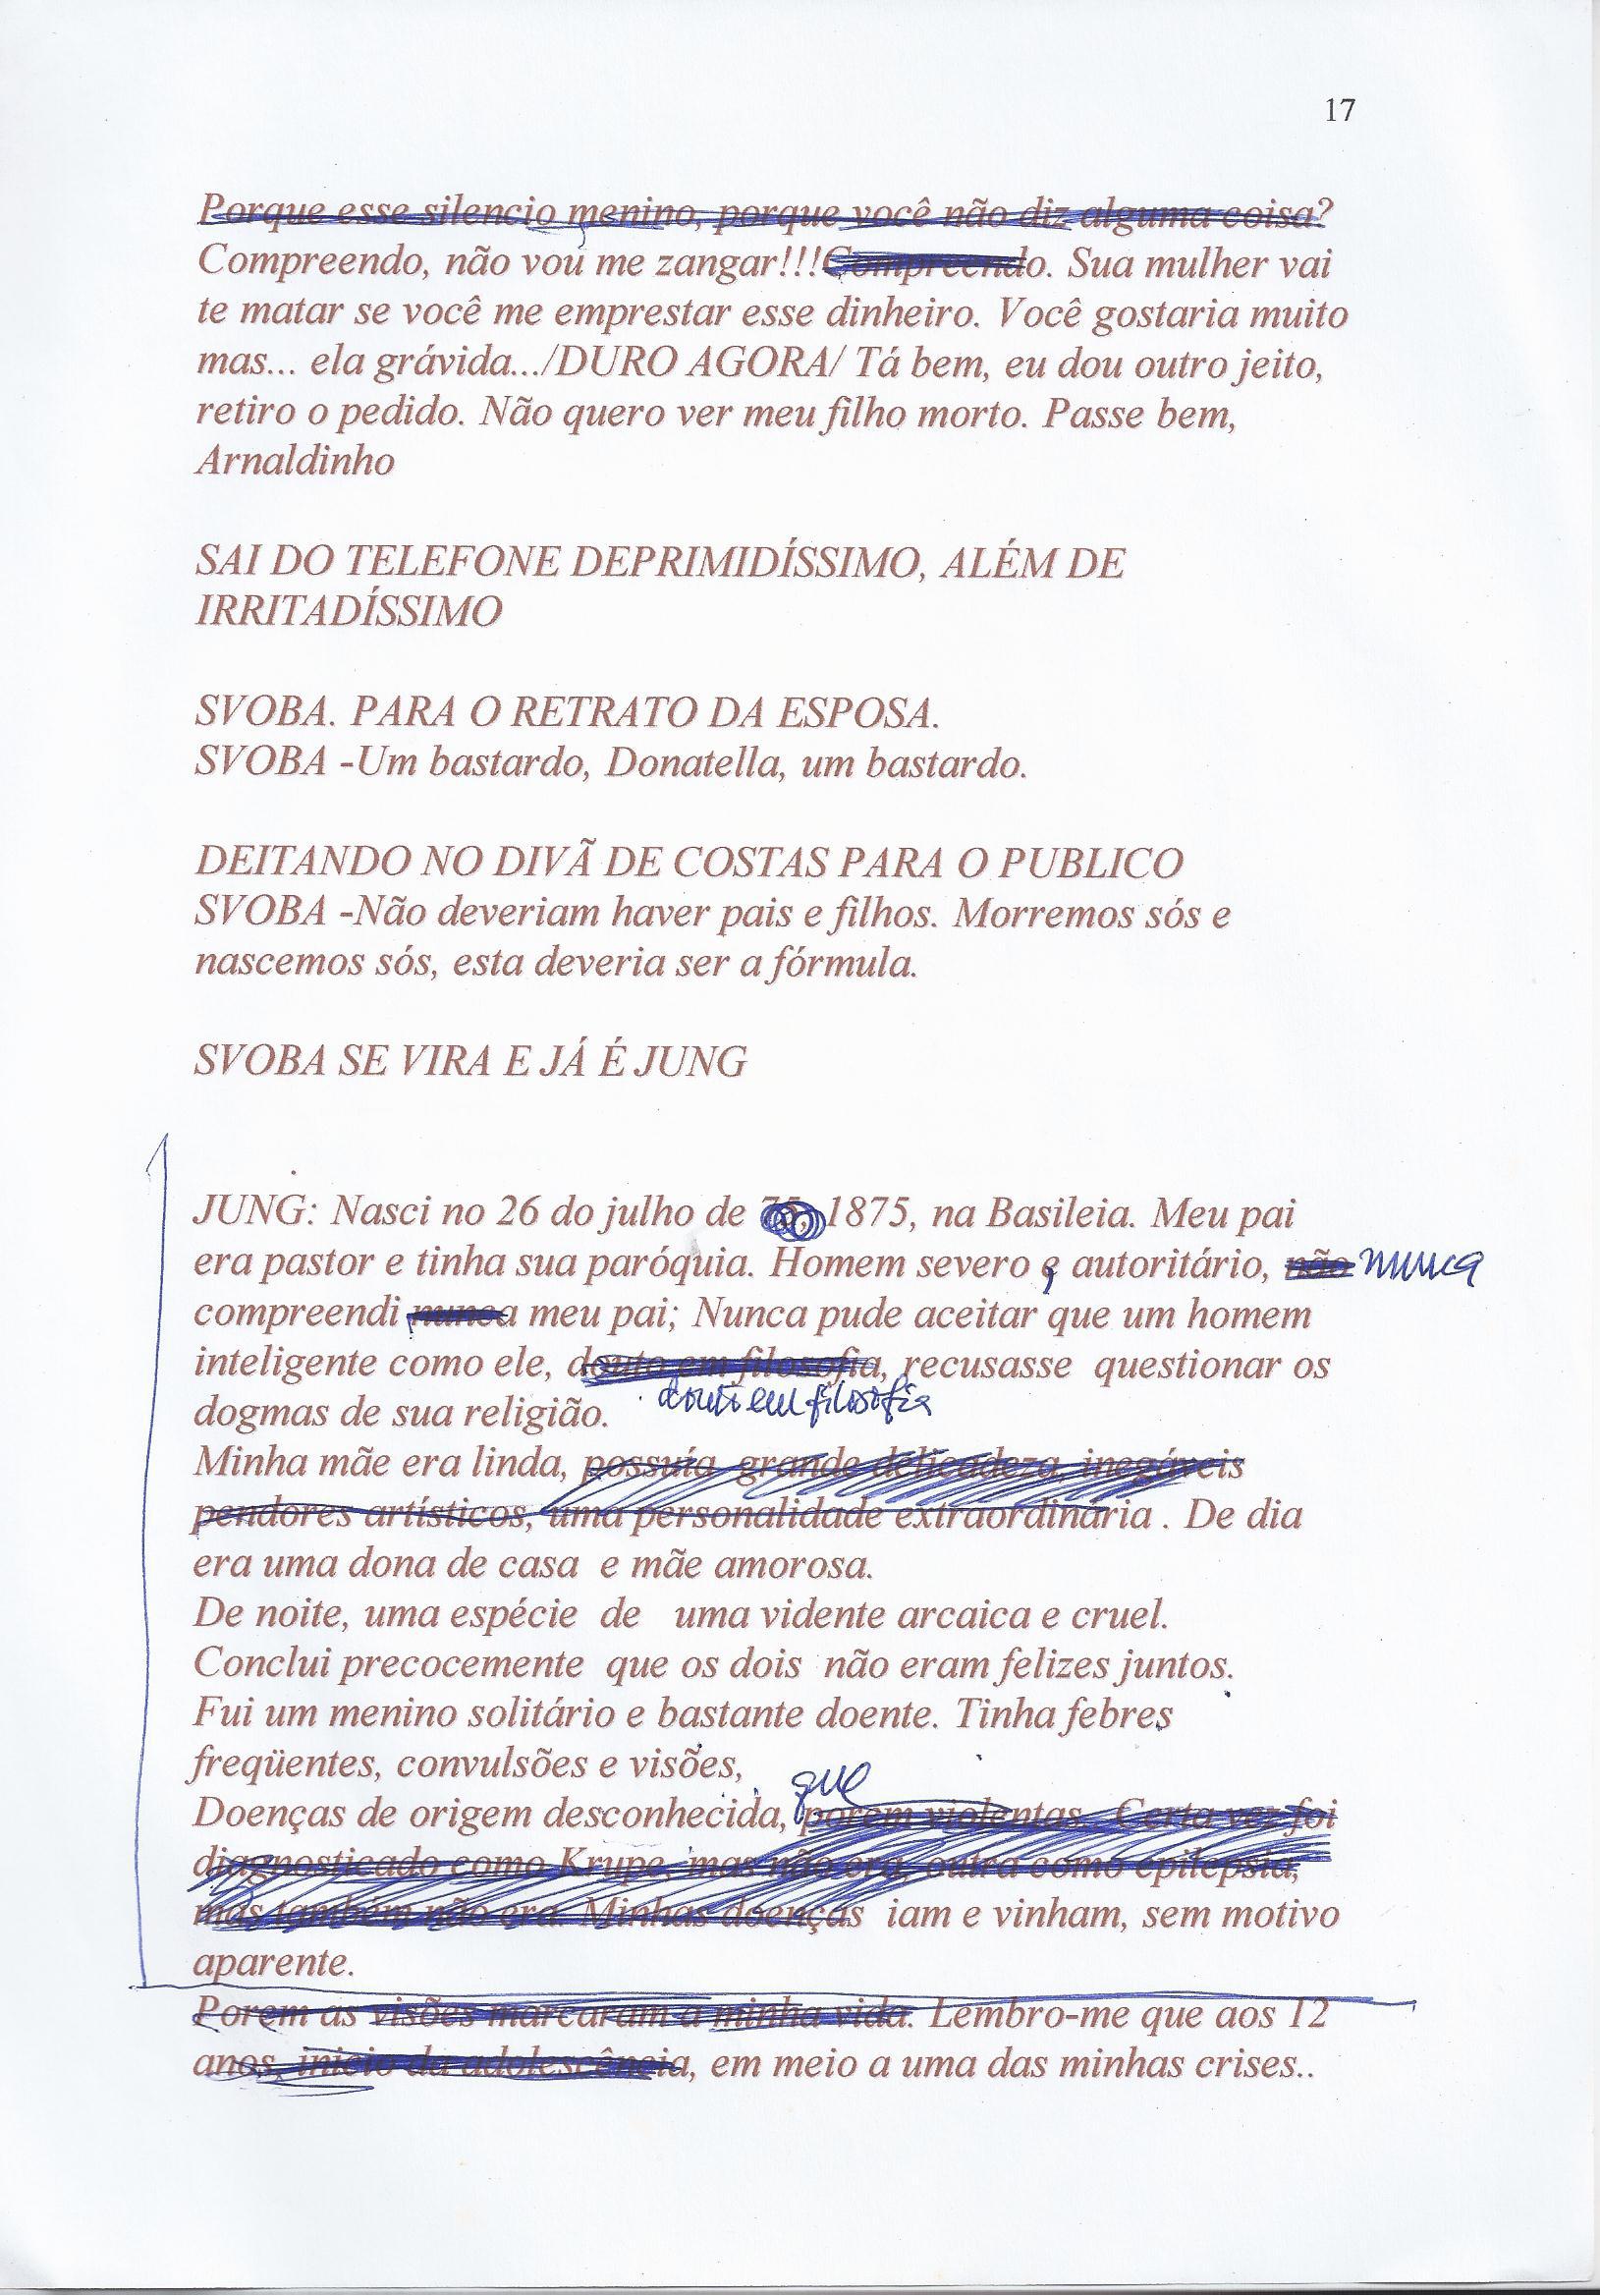 17
Porque esse silencio menino, porque você não diz alguma coisa?
Compreendo, não vou me zangar!!!Compreendo. Sua mulher vai
te matar se você me emprestar esse dinheiro. Você gostaria muito
mas... ela grávida.../DURO AGORA/ Tá bem, eu dou outro jeito,
retiro o pedido. Não quero ver meu filho morto. Passe bem,
Arnaldinho
SAI DO TELEFONE DEPRIMIDÍSSIMO, ALÉM DE
IRRITADÍSSIMO
SVOBA. PARA O RETRATO DA ESPOSA.
SVOBA -Um bastardo, Donatella, um bastardo.
DEITANDO NO DIVÃ DE COSTAS PARA O PUBLICO
SVOBA -Não deveriam haver pais e filhos. Morremos sós e
nascemos sós, esta deveria ser a fórmula.
SVOBA SE VIRA E JÁ É JUNG
JUNG: Nasci no 26 do julho de 75, 1875, na Basileia. Meu pai
era pastor e tinha sua paróquia. Homem severo e autoritário, não nunca
compreendi nunca meu pai; Nunca pude aceitar que um homem
inteligente como ele, douto em filosofia, recusasse questionar os
douto em filosofia
dogmas de sua religião.
Minha mãe era linda, possuía grande delicadeza, inegáveis
pendores artísticos, uma personalidade extraordinária . De dia
era uma dona de casa e mãe amorosa.
De noite, uma espécie de uma vidente arcaica e cruel.
Conclui precocemente que os dois não eram felizes juntos.
Fui um menino solitário e bastante doente. Tinha febres
freqüentes, convulsões e visões,
que
Doenças de origem desconhecida, porem violentas. Certa vez foi
diagnosticado como Krupe, mas não era, outra como epilepsia,
mas também não era. Minhas doenças iam e vinham, sem motivo
aparente.
Porem as visões marcaram a minha vida. Lembro-me que aos 12
anos, inicio da adolescência, em meio a uma das minhas crises..